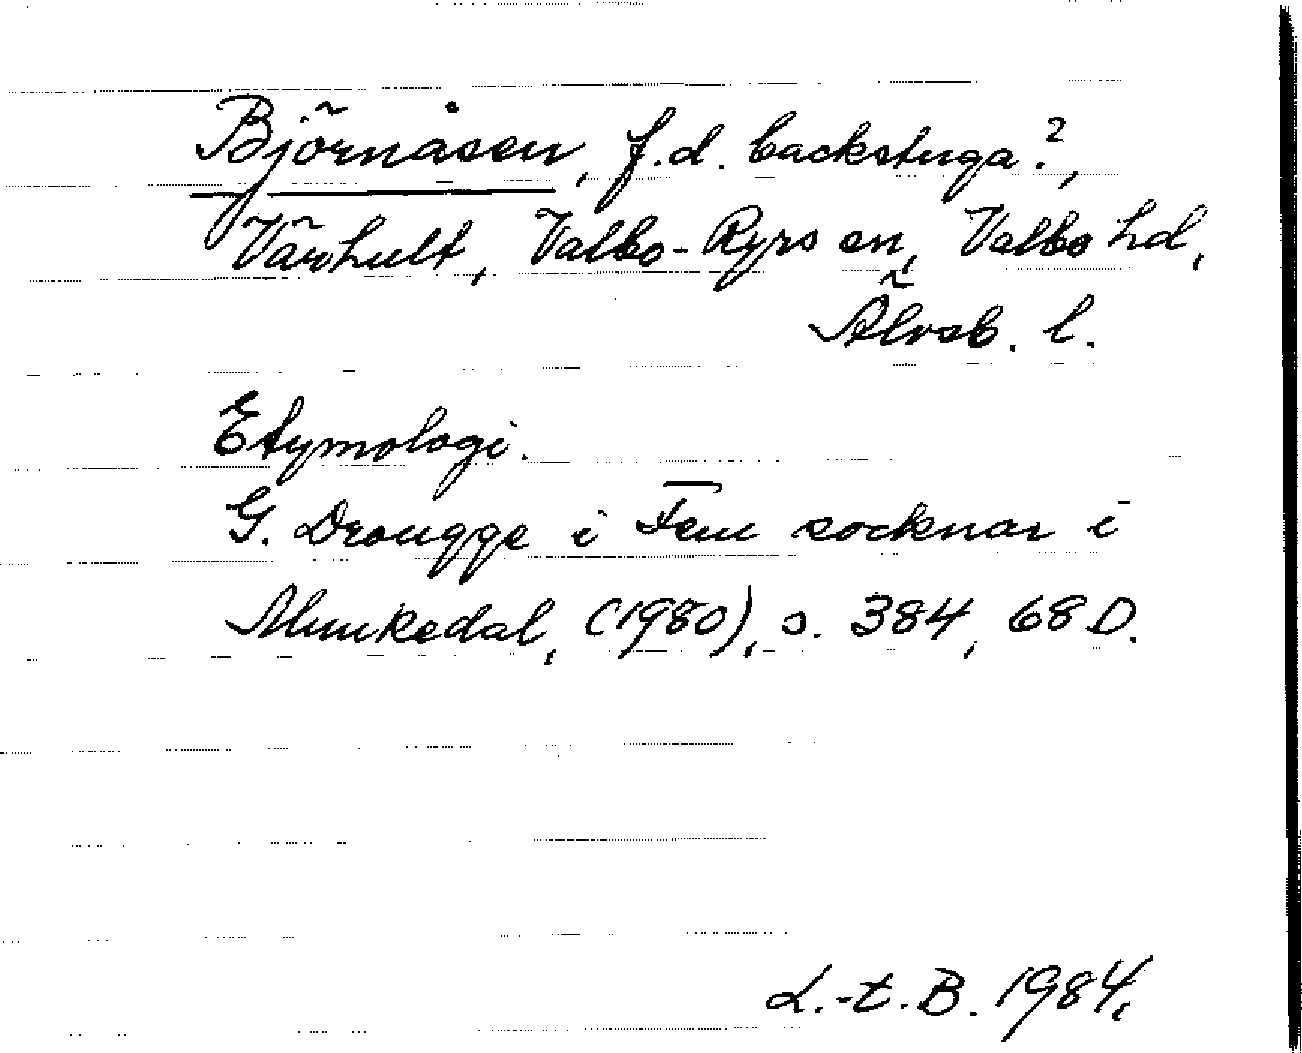 Björnåsen, f.d. backstuga?,
Värhult, Valbo-Ryrs sn, Valbo hd,
Älvsb. l.
Etymologi.
G. Drougge i Fem socknar i
Munkedal, (1980), s. 384, 68 D.
L.-t. B. 1984.